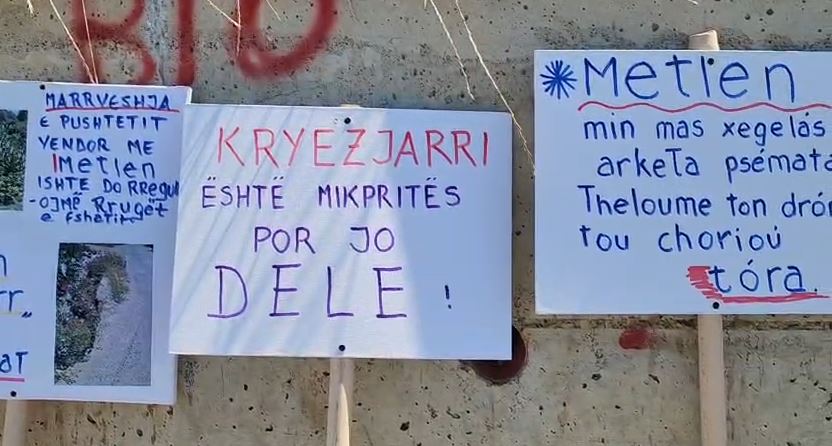 BIO
MARRVESHJA
E PUSHTETIT
VENDOR ME
METLEN
ISHTE DO RREGUL
-OJMË RRUGËT
E FSHATIT
KRYEZJARRI
ËSHTË MIKPRITËS
POR JO
DELE !
Metlen
min mas xegelás
arketa psémata
Theloume ton dró
tou horioú
tóra.